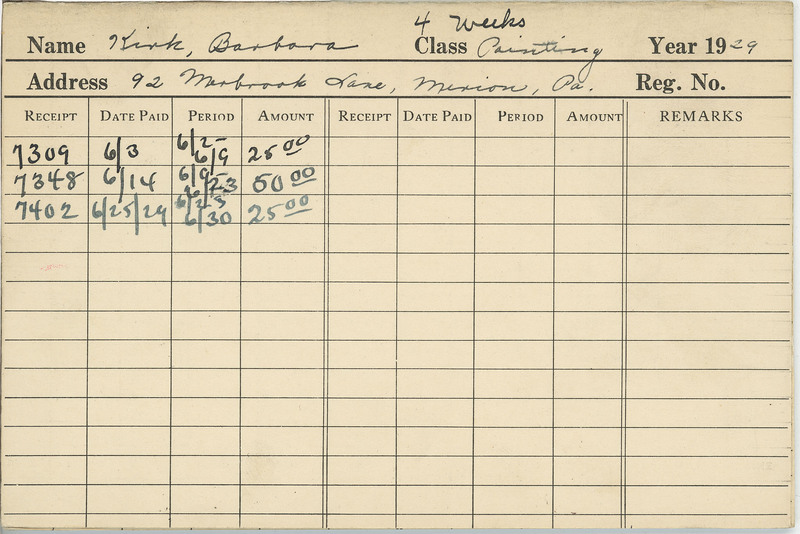 4 Weeks
Name Kirk, Barbara Class Painting Year 1929
Address 92 Merbrook Lane, Merion, Pa. Reg. No.
RECEIPT DATE PAID PERIOD AMOUNT RECEIPT DATE PAID PERIOD AMOUNT REMARKS
7309 6/3 6/2- 6/9 25.00
7348 6/14 6/9- 6/23 50.00
7402 6/25/29 6/23 6/30 25.00